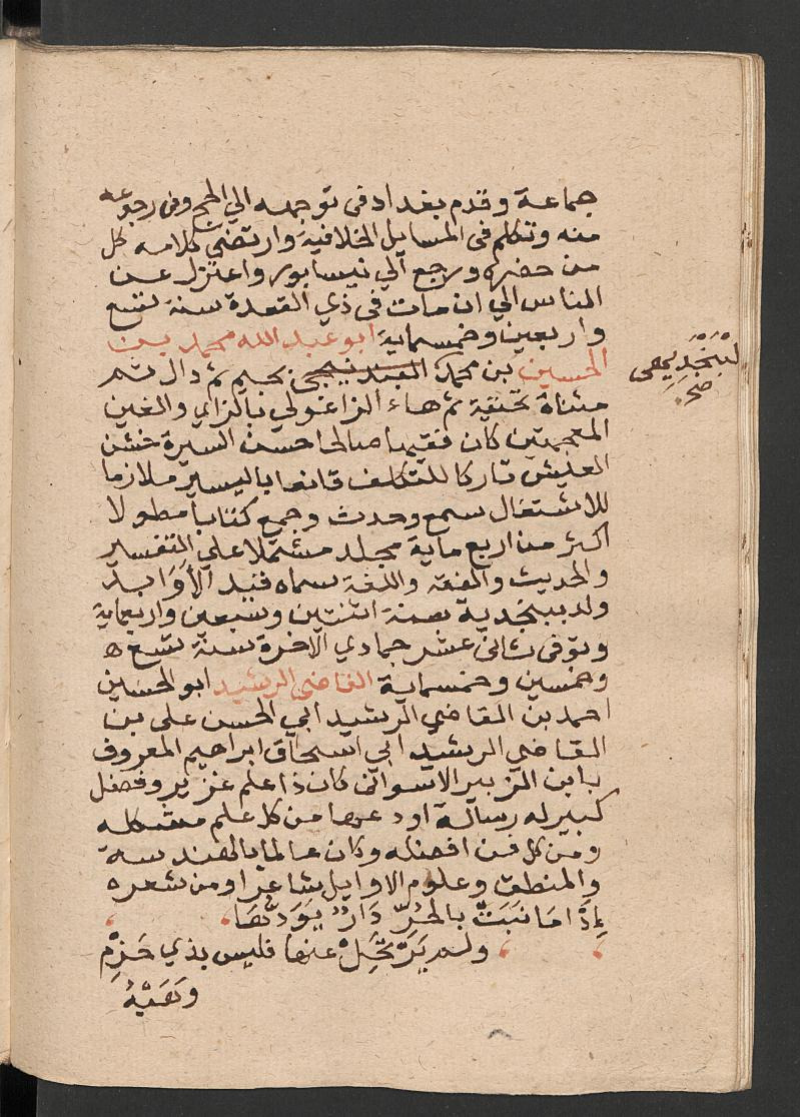 جماعة وقدم بغداد في توجهه الي الحج وفي رجوعه
منه وتكلم في المسايل الخلافية وارتضي كلامه كل
من حضره ورجع الي نيسابور واعتزل عن
الناس الي ان مات في ذي القعدة سنة تسع
واربعين وخمسماية ابو عبد الله محمد بن
الحسين بن محمد بجيم ثم دال ثم
مثناة تحتية ثم هاء الزاغولي بالزاي والغين
المعجمتين كان فقيها صالحا حسن السيرة خشن
العيش تاركا للتكلف قانعا باليسير ملازما
للاشتغال سمع وحدث وجمع كتابا مطولا
اكثر من اربع ماية مجلد مشتملا علي التفسير
والحديث والفقه واللغة سماه قيد الأوابد
ولد ببنجدية سنة اثنتين وسبعين واربعماية
وتوفي ثاني عشر جمادي الاخرة سنة تسع
وخمسين وخمسماية القاضي الرشيد ابو الحسين
احمد بن القاضي الرشيد ابي الحسن علي بن
القاضي الرشيد ابي اسحاق ابراهيم المعروف
بابن الزبير الاسواني كان ذا علم غزير وفضل
كبير له رسالة اودعها من كل علم مشكله
ومن كل فن افضله وكان عالما بالهندسة
والمنطق وعلوم الاوايل شاعرا ومن شعره
إِذَا مَا نَبَتْ بالحُرِّ دَارٌ يَوَدُّهَا
ولم يَرْتَحِلْ عنها فليس بذي حَزْمِ
وَهَبْهُ
صح